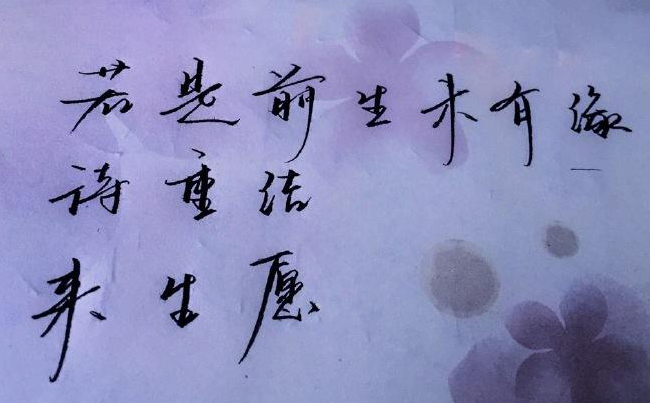 若是前生未有缘
待重结
来生愿